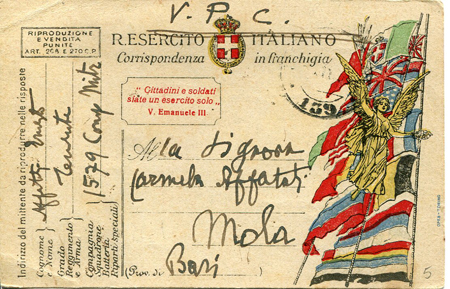 V. P. C.
RIPRODUZIONE
E VENDITA
PUNITE
ART. 268 E 270 C.P.
R. ESERCITO ITALIANO
Corrispondenza in franchigia
"Cittadini e soldati
siate un esercito solo"
V. Emanuele III
159
Alla Signora
Carmela Affatati
Mola
(Prov. di Bari)
Indirizzo del mittente da riprodurre nelle risposte
Cognome e Nome
Grado
Reggimento e Arma
Tenente
Compagnia
Squadrone
Batteria
Riparti speciali
1579 Comp Mitr
5